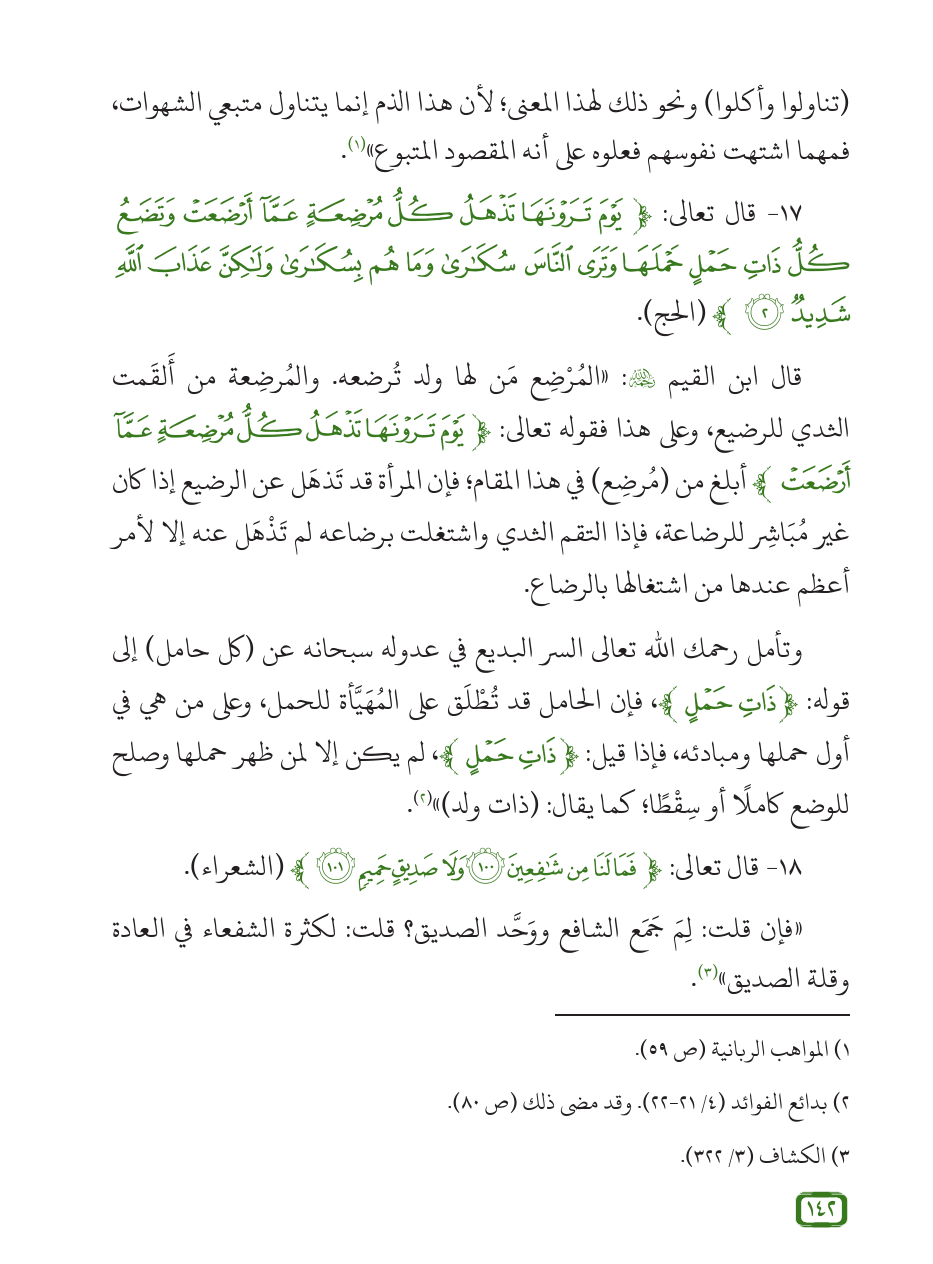 (تناولوا وأكلوا) ونحو ذلك لهذا المعنى؛ لأن هذا الذم إنما يتناول متبعي الشهوات،
فمهما اشتهت نفوسهم فعلوه على أنه المقصود المتبوع»(١).
١٧- قال تعالى: ﴿ يَوْمَ تَرَوْنَهَا تَذْهَلُ كُلُّ مُرْضِعَةٍ عَمَّآ أَرْضَعَتْ وَتَضَعُ
كُلُّ ذَاتِ حَمْلٍ حَمْلَهَا وَتَرَى ٱلنَّاسَ سُكَٰرَىٰ وَمَا هُم بِسُكَٰرَىٰ وَلَٰكِنَّ عَذَابَ ٱللَّهِ
شَدِيدٌ ٢ ﴾ (الحج).
قال ابن القيم ﵀: «المُرْضِع مَن لها ولد تُرضعه. والمُرضِعة من أَلقَمت
الثدي للرضيع، وعلى هذا فقوله تعالى: ﴿ يَوْمَ تَرَوْنَهَا تَذْهَلُ كُلُّ مُرْضِعَةٍ عَمَّآ
أَرْضَعَتْ ﴾ أبلغ من (مُرضِع) في هذا المقام؛ فإن المرأة قد تَذهَل عن الرضيع إذا كان
غير مُبَاشِر للرضاعة، فإذا التقم الثدي واشتغلت برضاعه لم تَذْهَل عنه إلا لأمر
أعظم عندها من اشتغالها بالرضاع.
وتأمل رحمك الله تعالى السر البديع في عدوله سبحانه عن (كل حامل) إلى
قوله: ﴿ ذَاتِ حَمْلٍ ﴾، فإن الحامل قد تُطْلَق على المُهَيَّأة للحمل، وعلى من هي في
أول حملها ومبادئه، فإذا قيل: ﴿ ذَاتِ حَمْلٍ ﴾، لم يكن إلا لمن ظهر حملها وصلح
للوضع كاملًا أو سِقْطًا؛ كما يقال: (ذات ولد)»(٢).
١٨- قال تعالى: ﴿ فَمَا لَنَا مِن شَٰفِعِينَ ١٠٠ وَلَا صَدِيقٍ حَمِيمٍ ١٠١ ﴾ (الشعراء).
«فإن قلت: لِمَ جَمَع الشافع ووَحَّد الصديق؟ قلت: لكثرة الشفعاء في العادة
وقلة الصديق»(٣).
١) المواهب الربانية (ص ٥٩).
٢) بدائع الفوائد (٤/ ٢١-٢٢). وقد مضى ذلك (ص ٨٠).
٣) الكشاف (٣/ ٣٢٢).
١٤٢